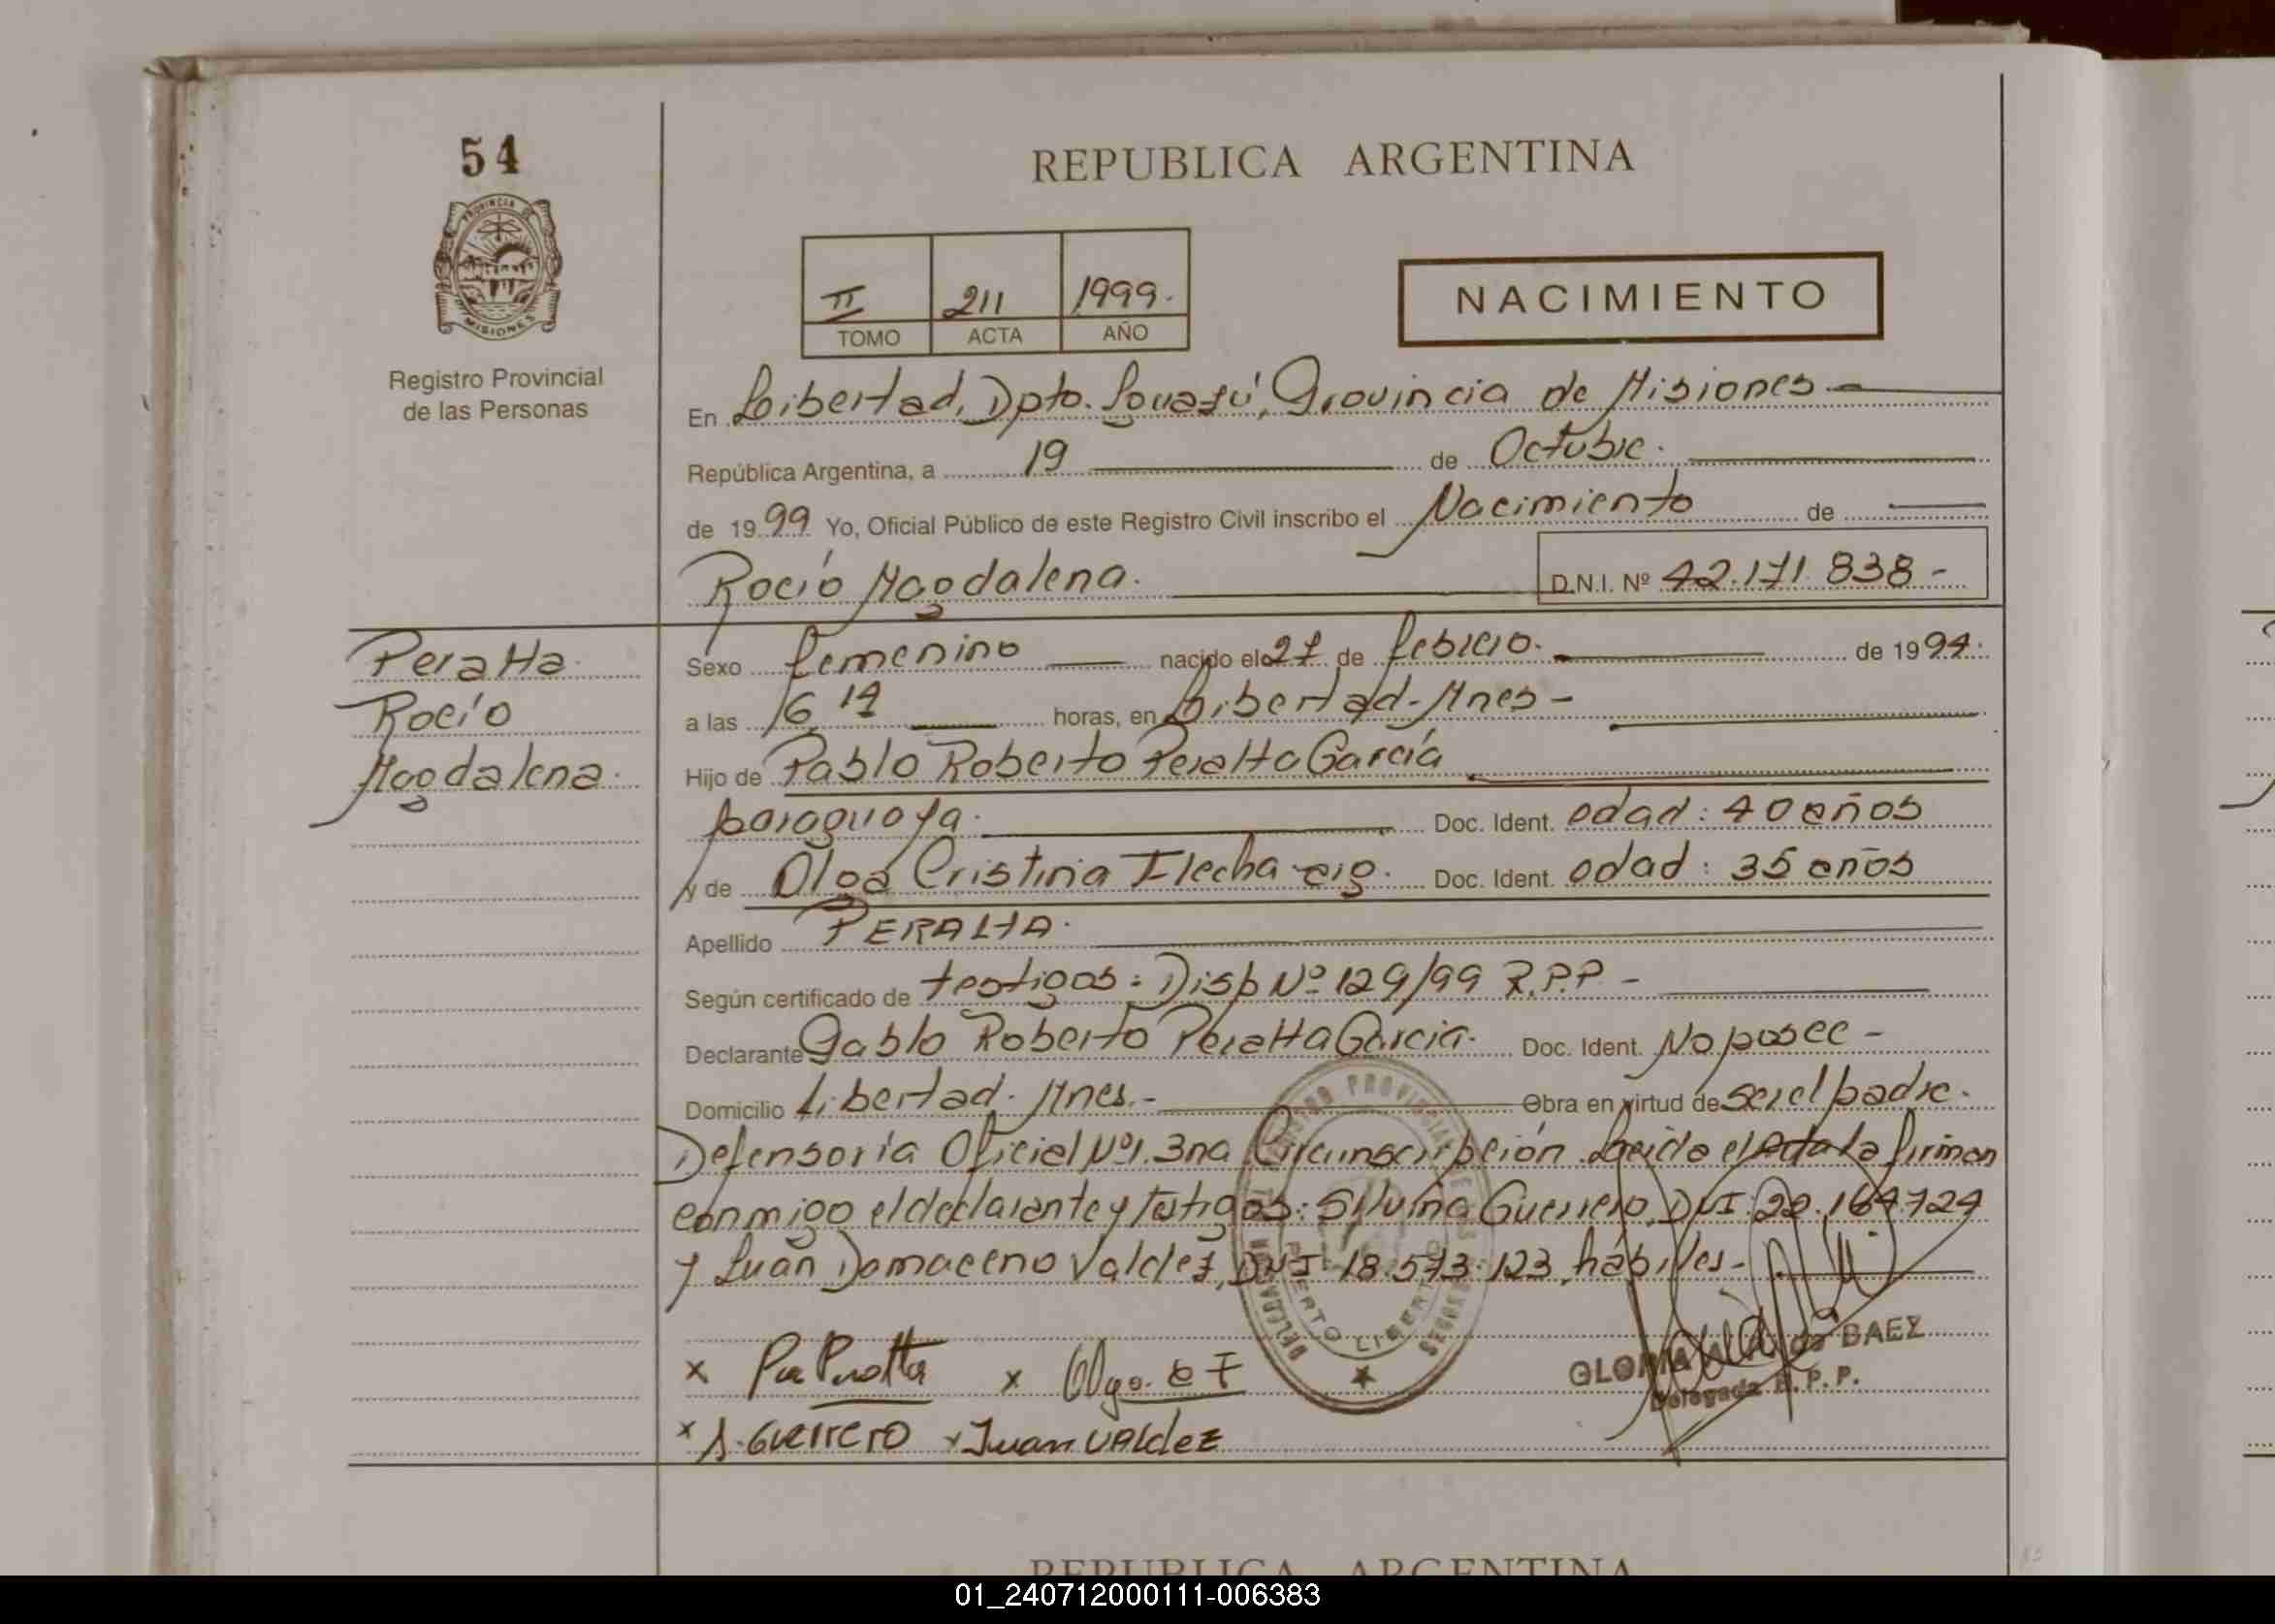 54
REPUBLICA ARGENTINA
PROVINCIA DE
MISIONES
Registro Provincial
de las Personas
II 211 1999.
TOMO ACTA AÑO
NACIMIENTO
En Libertad, Dpto. Iguazú, Provincia de Misiones
República Argentina, a 19 de Octubre.
de 1999 Yo, Oficial Público de este Registro Civil inscribo el Nacimiento de
Rocío Magdalena. D.N.I. Nº 42.171.838-
Peralta
Rocío
Magdalena.
Sexo femenino nacido el 27 de febrero. de 1994.
a las 16,14 horas, en Libertad-Mnes-
Hijo de Pablo Roberto Peralta García
paraguaya. Doc. Ident. edad: 40 años
y de Olga Cristina Flecha-arg. Doc. Ident. edad: 35 años
Apellido PERALTA.
Según certificado de testigos: Disp Nº 129/99 R.P.P.-
Declarante Pablo Roberto Peralta García. Doc. Ident. No posee-
Domicilio Libertad. Mnes.- Obra en virtud de ser el padre.
Defensoría Oficial Nº1. 3na Circunscripción. Leída el acta la firman
conmigo el declarante y testigos: Silvina Guerrero, DNI: 22.164.724
y Juan Damaceno Valdez, DNI: 18.573.123, hábiles-
PUERTO LIBERTAD
x x Olga. C F
GLORIA de BAEZ
Delegada R. P. P.
x S. Guerrero x Juan VAldez
REPUBLICA ARGENTINA
01_240712000111-006383